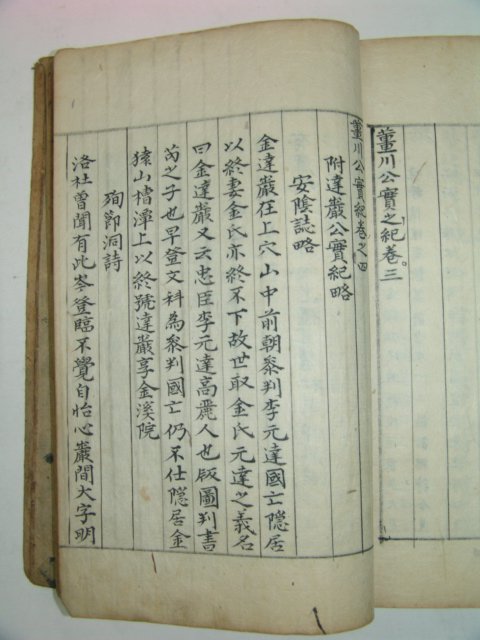 菫川公實之紀卷三
菫川公實紀卷之四
附達巖公實紀略
安陰誌略
金達巖在上穴山中前朝叅判李元達國亡隱居
以終妻金氏亦終不下故世取金氏元達之義名
曰金達巖又云忠臣李元達高麗人也版圖判書
芮之子也早登文科為叅判國亡仍不仕隱居金
猿山槽潭上以終號達巖享金溪院
殉節洞詩
洛社曾聞有此岑登臨不覺自怡心巖間大字明